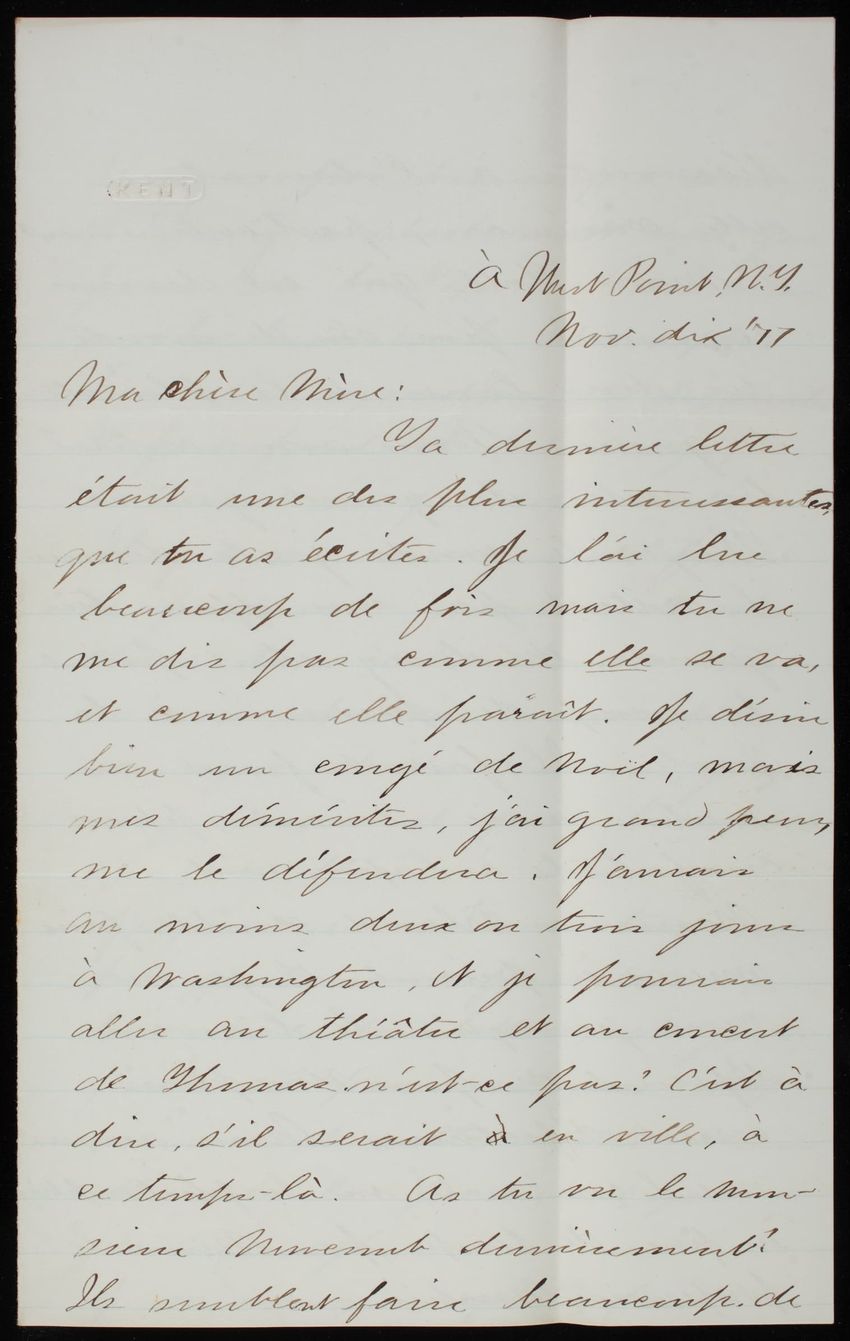 KENT
à West Point, N.Y.
Nov. dix "77
Ma chère Mère:
Ta dernière lettre
était une des plus interessantes,
que tu as écrites. Je l'ai lue
beaucoup de fois mais tu ne
me dis pas comme elle se va,
et comme elle paraît. Je désire
bien un congé de Noël, mais
mes démérites, j'ai grand peur,
me le défendera. J'aurais
au moins deux ou trois jours
à Washington, et je pourrais
aller au théâtre et au concert
de Thomas n'est-ce pas? C'est à
dire, s'il serait à en ville, à
ce temps-là. As tu vu le Mon-
sieur dernièrement?
Ils semblent faire beaucoup de